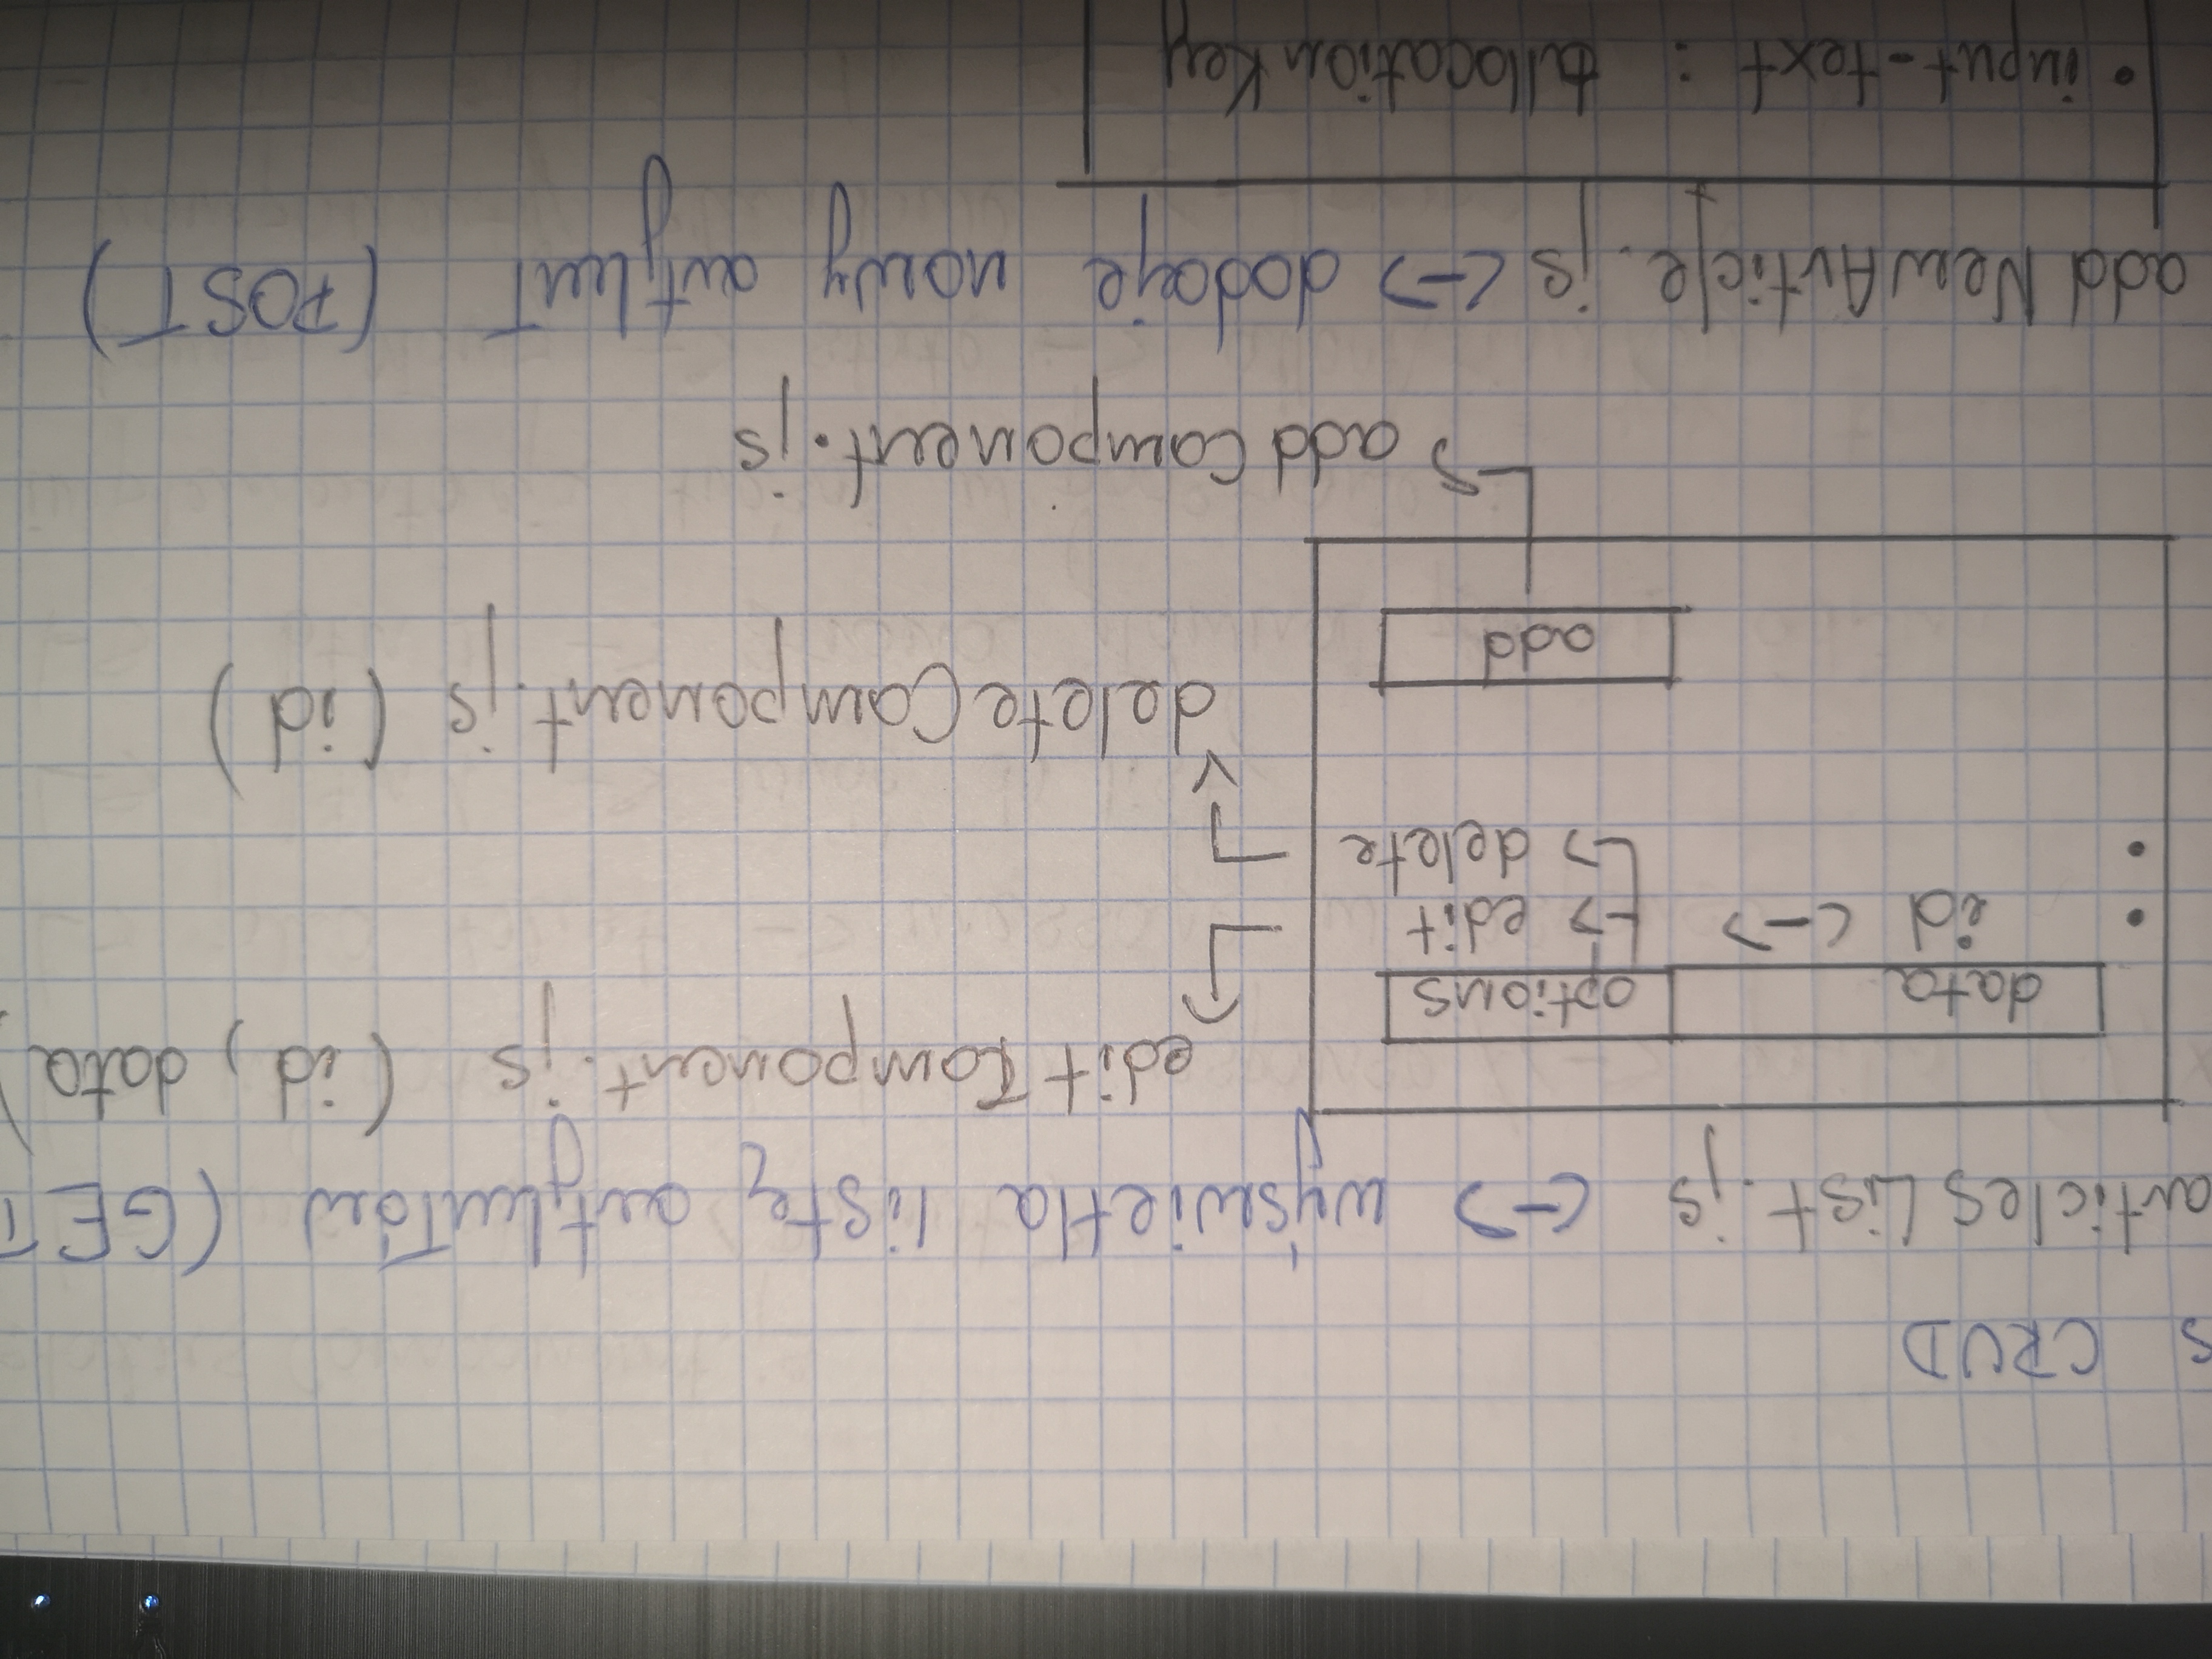 s CRUD
articlesList.js <-> wyświetla listę artykułów (GET
editComponent.js (id, data)
data options
• id <-> edit
• delete
deleteComponent.js (id)
add
addComponent.js
addNewArticle.js <-> dodaje nowy artykuł (POST)
• input-text : allocationKey